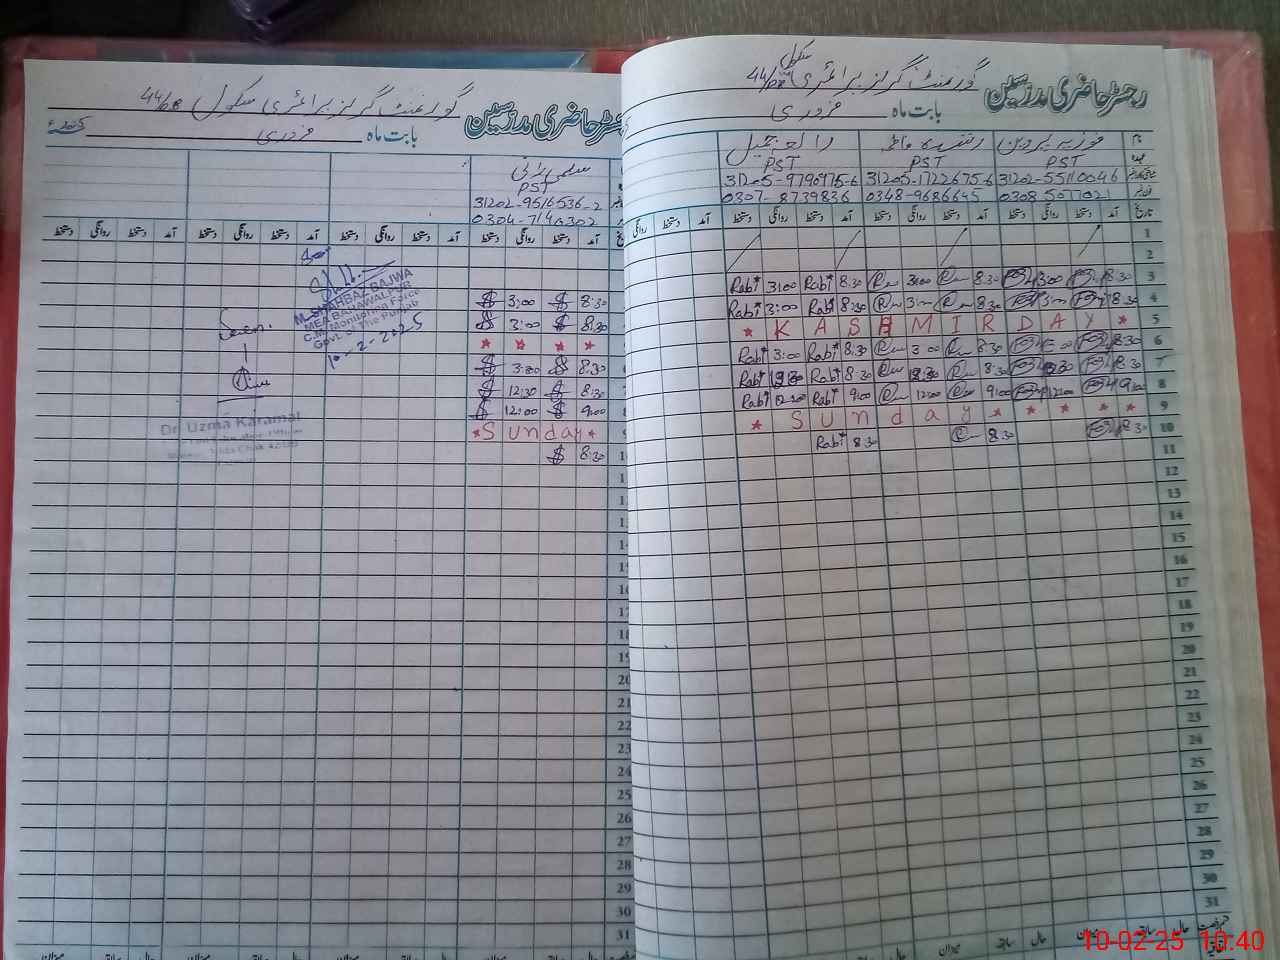 رجسٹر حاضری مدرسین گورنمنٹ گرلز پرائمری سکول 44/DB
بابت ماہ فروری
نام فوزیہ پروین رشیدہ فاطمہ رابعہ جمیل
PST PST PST
31202-5511004-6 31205-1722675-6 31205-9790975-6
0308 5077021 0348-9686645 0307-8739836
تاریخ آمد دستخط روانگی دستخط آمد دستخط روانگی دستخط آمد دستخط روانگی دستخط آمد دستخط روانگی
1
2
3 8:30 3:00 8:30 3:00 Rabi 8:30 3:00 Rabi
4 8:30 3:00 8:30 3:00 Rabi 8:30 3:00 Rabi
5 * KASHMIR DAY *
6 8:30 3:00 8:30 3:00 Rabi 8:30 3:00 Rabi
7 8:30 12:30 8:30 12:30 Rabi 8:30 12:30 Rabi
8 9:00 12:00 9:00 12:00 Rabi 9:00 12:00 Rabi
9 * Sunday * * * * *
10 8:30 8:30 Rabi 8:30
11
12
13
14
15
16
17
18
19
20
21
22
23
24
25
26
27
28
29
30
31
میزان حال سابقہ میزان حال سابقہ میزان
رجسٹر حاضری مدرسین گورنمنٹ گرلز پرائمری سکول 44/DB
بابت ماہ فروری
سلمی رانی
PST
31202-9516536-2
0304-7140302
آمد دستخط روانگی دستخط آمد دستخط روانگی دستخط آمد دستخط روانگی دستخط آمد دستخط روانگی دستخط
8:30 3:00
8:30 3:00
* * * *
8:30 3:00
8:30 12:30
9:00 12:00
* Sunday *
8:30
M. SHAHBAZ BAJWA
MEA BAHAWALPUR
C.M. Monitoring Force
Govt. of The Punjab
10-2-2025
Seen.
Dr. Uzma Karamat
18
19
20
21
22
23
24
25
26
27
28
29
30
31
میزان حال سابقہ میزان حال سابقہ میزان
10-02-25 10:40